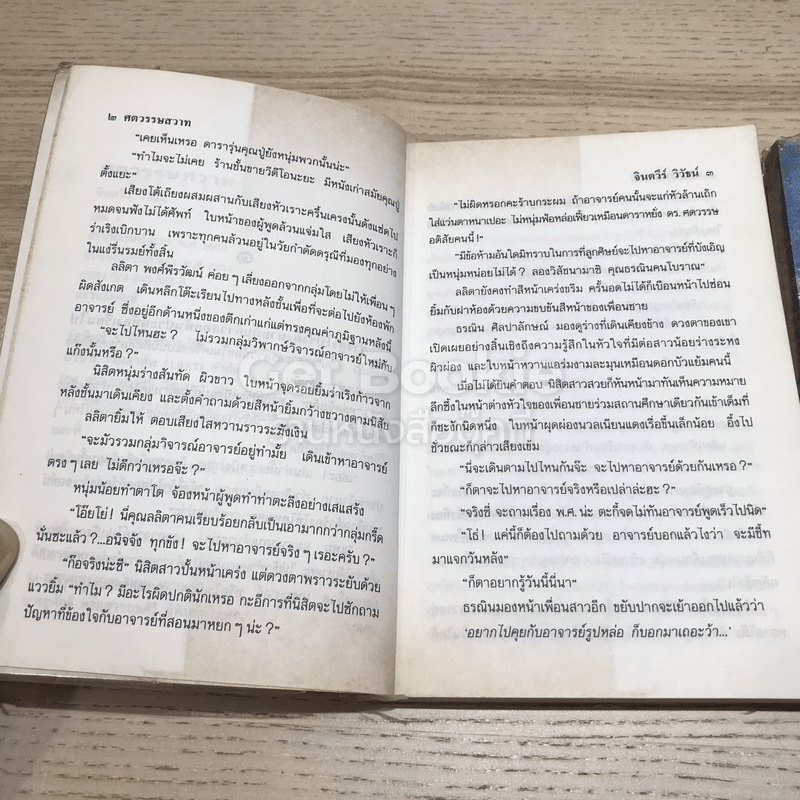 ๒ ศตวรรษสวาท
“เคยเห็นเหรอ ดารารุ่นคุณปู่ยังหนุ่มพวกนั้นน่ะ”
“ทำไมจะไม่เคย ร้านชั้นขายวีดีโอนะยะ มีหนังเก่าสมัยคุณปู่
ตั้งแยะ”
เสียงโต้เถียงผสมผสานกับเสียงหัวเราะครื้นเครงนั้นดังแซ่ดไป
หมดจนฟังไม่ได้ศัพท์ ใบหน้าของผู้พูดล้วนแจ่มใส เสียงหัวเราะก็
ร่าเริงเบิกบาน เพราะทุกคนล้วนอยู่ในวัยกำดัดดรุณีที่มองทุกอย่าง
ในแง่รื่นรมย์ทั้งสิ้น
ลลิตา พงศ์พีรวัฒน์ ค่อย ๆ เลี่ยงออกจากกลุ่มโดยไม่ให้เพื่อน ๆ
ผิดสังเกต เดินหลีกโต๊ะเรียนไปทางหลังชั้นเพื่อที่จะต่อไปยังห้องพัก
อาจารย์ ซึ่งอยู่อีกด้านหนึ่งของตึกเก่าแก่แต่ทรงคุณค่าภูมิฐานหลังนี้
“จะไปไหนฮะ ? ไม่รวมกลุ่มวิพากษ์วิจารณ์อาจารย์ใหม่กับ
แก๊งนั้นหรือ ?”
นิสิตหนุ่มร่างสันทัด ผิวขาว ใบหน้าจุดรอยยิ้มร่าเริงก้าวจาก
หลังชั้นมาเดินเคียง และตั้งคำถามด้วยสีหน้ายิ้มกว้างขวางตามนิสัย
ลลิตายิ้มให้ ตอบเสียงใสหวานราวระฆังเงิน
“จะมัวรวมกลุ่มวิจารณ์อาจารย์อยู่ทำมั้ย เดินเข้าหาอาจารย์
ตรง ๆ เลย ไม่ดีกว่าเหรอจ๊ะ ?”
หนุ่มน้อยทำตาโต จ้องหน้าผู้พูดทำท่าตะลึงอย่างเสแสร้ง
“โอ๊ยโย่! นี่คุณลลิตาคนเรียบร้อยกลับเป็นเอามากกว่ากลุ่มกรี๊ด
นั่นซะแล้ว ?...อนิจจัง ทุกขัง! จะไปหาอาจารย์จริง ๆ เรอะครับ ?”
“ก๊อจริงน่ะซี” นิสิตสาวปั้นหน้าเคร่ง แต่ดวงตาพราวระยับด้วย
แววยิ้ม “ทำไม ? มีอะไรผิดปกตินักเหรอ กะอีการที่นิสิตจะไปซักถาม
ปัญหาที่ข้องใจกับอาจารย์ที่สอนมาหยก ๆ น่ะ ?”
จินตวีร์ วิวัธน์ ๓
“ไม่ผิดหรอกคะร้าบกระผม ถ้าอาจารย์คนนั้นจะแก่หัวล้านเถิก
ใส่แว่นตาหนาเปอะ ไม่หนุ่มฟ้อหล่อเฟี้ยวเหมือนดาราหยั่ง ดร. ศตวรรษ
อติสัยคนนี้!”
“มีข้อห้ามอันใดมิทราบในการที่ลูกศิษย์จะไปหาอาจารย์ที่บังเอิญ
เป็นหนุ่มหน่อยไม่ได้ ? ลองวิสัชนามาซิ คุณธรณินคนโบราณ”
ลลิตายังคงทำสีหน้าเคร่งขรึม ครั้นอดไม่ได้ก็เบือนหน้าไปซ่อน
ยิ้มกับฝาห้องด้วยความขบขันสีหน้าของเพื่อนชาย
ธรณิน ศิลปาลักษณ์ มองดูร่างที่เดินเคียงข้าง ดวงตาของเขา
เปิดเผยอย่างสิ้นเชิงถึงความรู้สึกในหัวใจที่มีต่อสาวน้อยร่างระหง
ผิวผ่อง และใบหน้าหวานแอร่มงามละมุนเหมือนดอกบัวแย้มคนนี้
เมื่อไม่ได้ยินคำตอบ นิสิตสาวสวยก็หันหน้ามาทันเห็นความหมาย
ลึกซึ้งในหน้าต่างหัวใจของเพื่อนชายร่วมสถานศึกษาเดียวกันเข้าเต็มที่
ก็ชะงักนิดหนึ่ง ใบหน้าผุดผ่องนวลเนียนแดงเรื่อขึ้นเล็กน้อย อึ้งไป
ชั่วขณะก็กล่าวเสียงเข้ม
“นี่จะเดินตามไปไหนกันจ๊ะ จะไปหาอาจารย์ด้วยกันเหรอ ?”
“ก็ตาจะไปหาอาจารย์จริงหรือเปล่าล่ะฮะ ?”
“จริงซี่ จะถามเรื่อง พ.ศ. น่ะ ตะกี้จดไม่ทันอาจารย์พูดเร็วไปนิด”
“โธ่! แค่นี้ก็ต้องไปถามด้วย อาจารย์บอกแล้วไงว่า จะมีชี้ท
มาแจกวันหลัง”
“ก็ตาอยากรู้วันนี้นี่นา”
ธรณินมองหน้าเพื่อนสาวอีก ขยับปากจะเย้าออกไปแล้วว่า
‘อยากไปคุยกับอาจารย์รูปหล่อ ก็บอกมาเถอะว้า...’